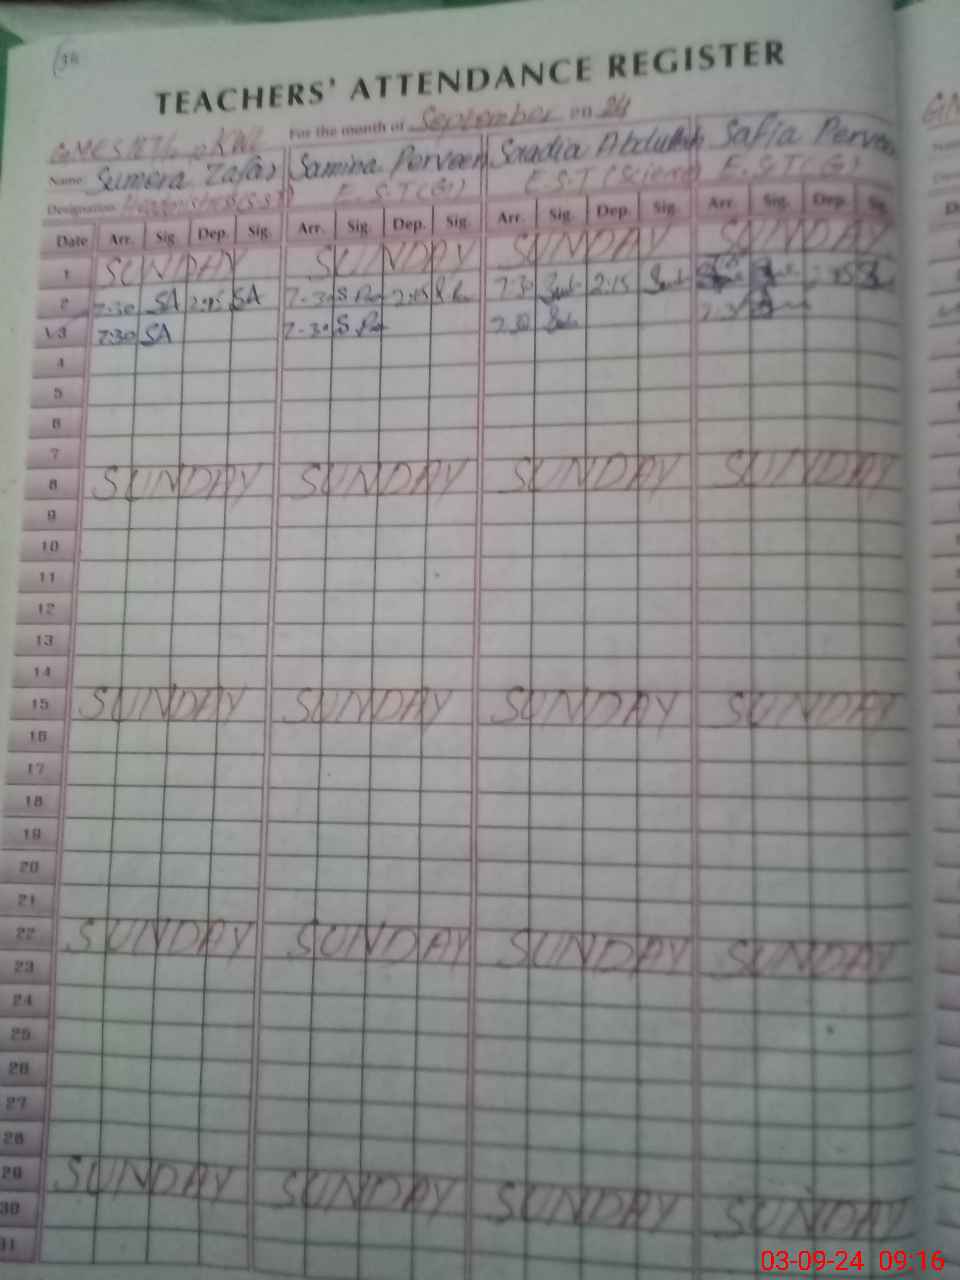 TEACHERS' ATTENDANCE REGISTER
For the month of September 24
Name Sumera Zafar Samina Perveen Saadia Abdullah Safia Perveen
Designation E.S.T(G) E.S.T (Science) E.S.T(G)
Date Arr. Sig. Dep. Sig. Arr. Sig. Dep. Sig. Arr. Sig. Dep. Sig. Arr. Sig. Dep. Sig.
1 SUNDAY SUNDAY SUNDAY SUNDAY
2 7:30 SA 2:15 SA 7:30 2:15 7:30 2:15
3 7:30 SA 7:30 7:30 7:30
4
5
6
7
8 SUNDAY SUNDAY SUNDAY SUNDAY
9
10
11
12
13
14
15 SUNDAY SUNDAY SUNDAY SUNDAY
16
17
18
19
20
21
22 SUNDAY SUNDAY SUNDAY SUNDAY
23
24
25
26
27
28
29 SUNDAY SUNDAY SUNDAY SUNDAY
30
31
03-09-24 09:16